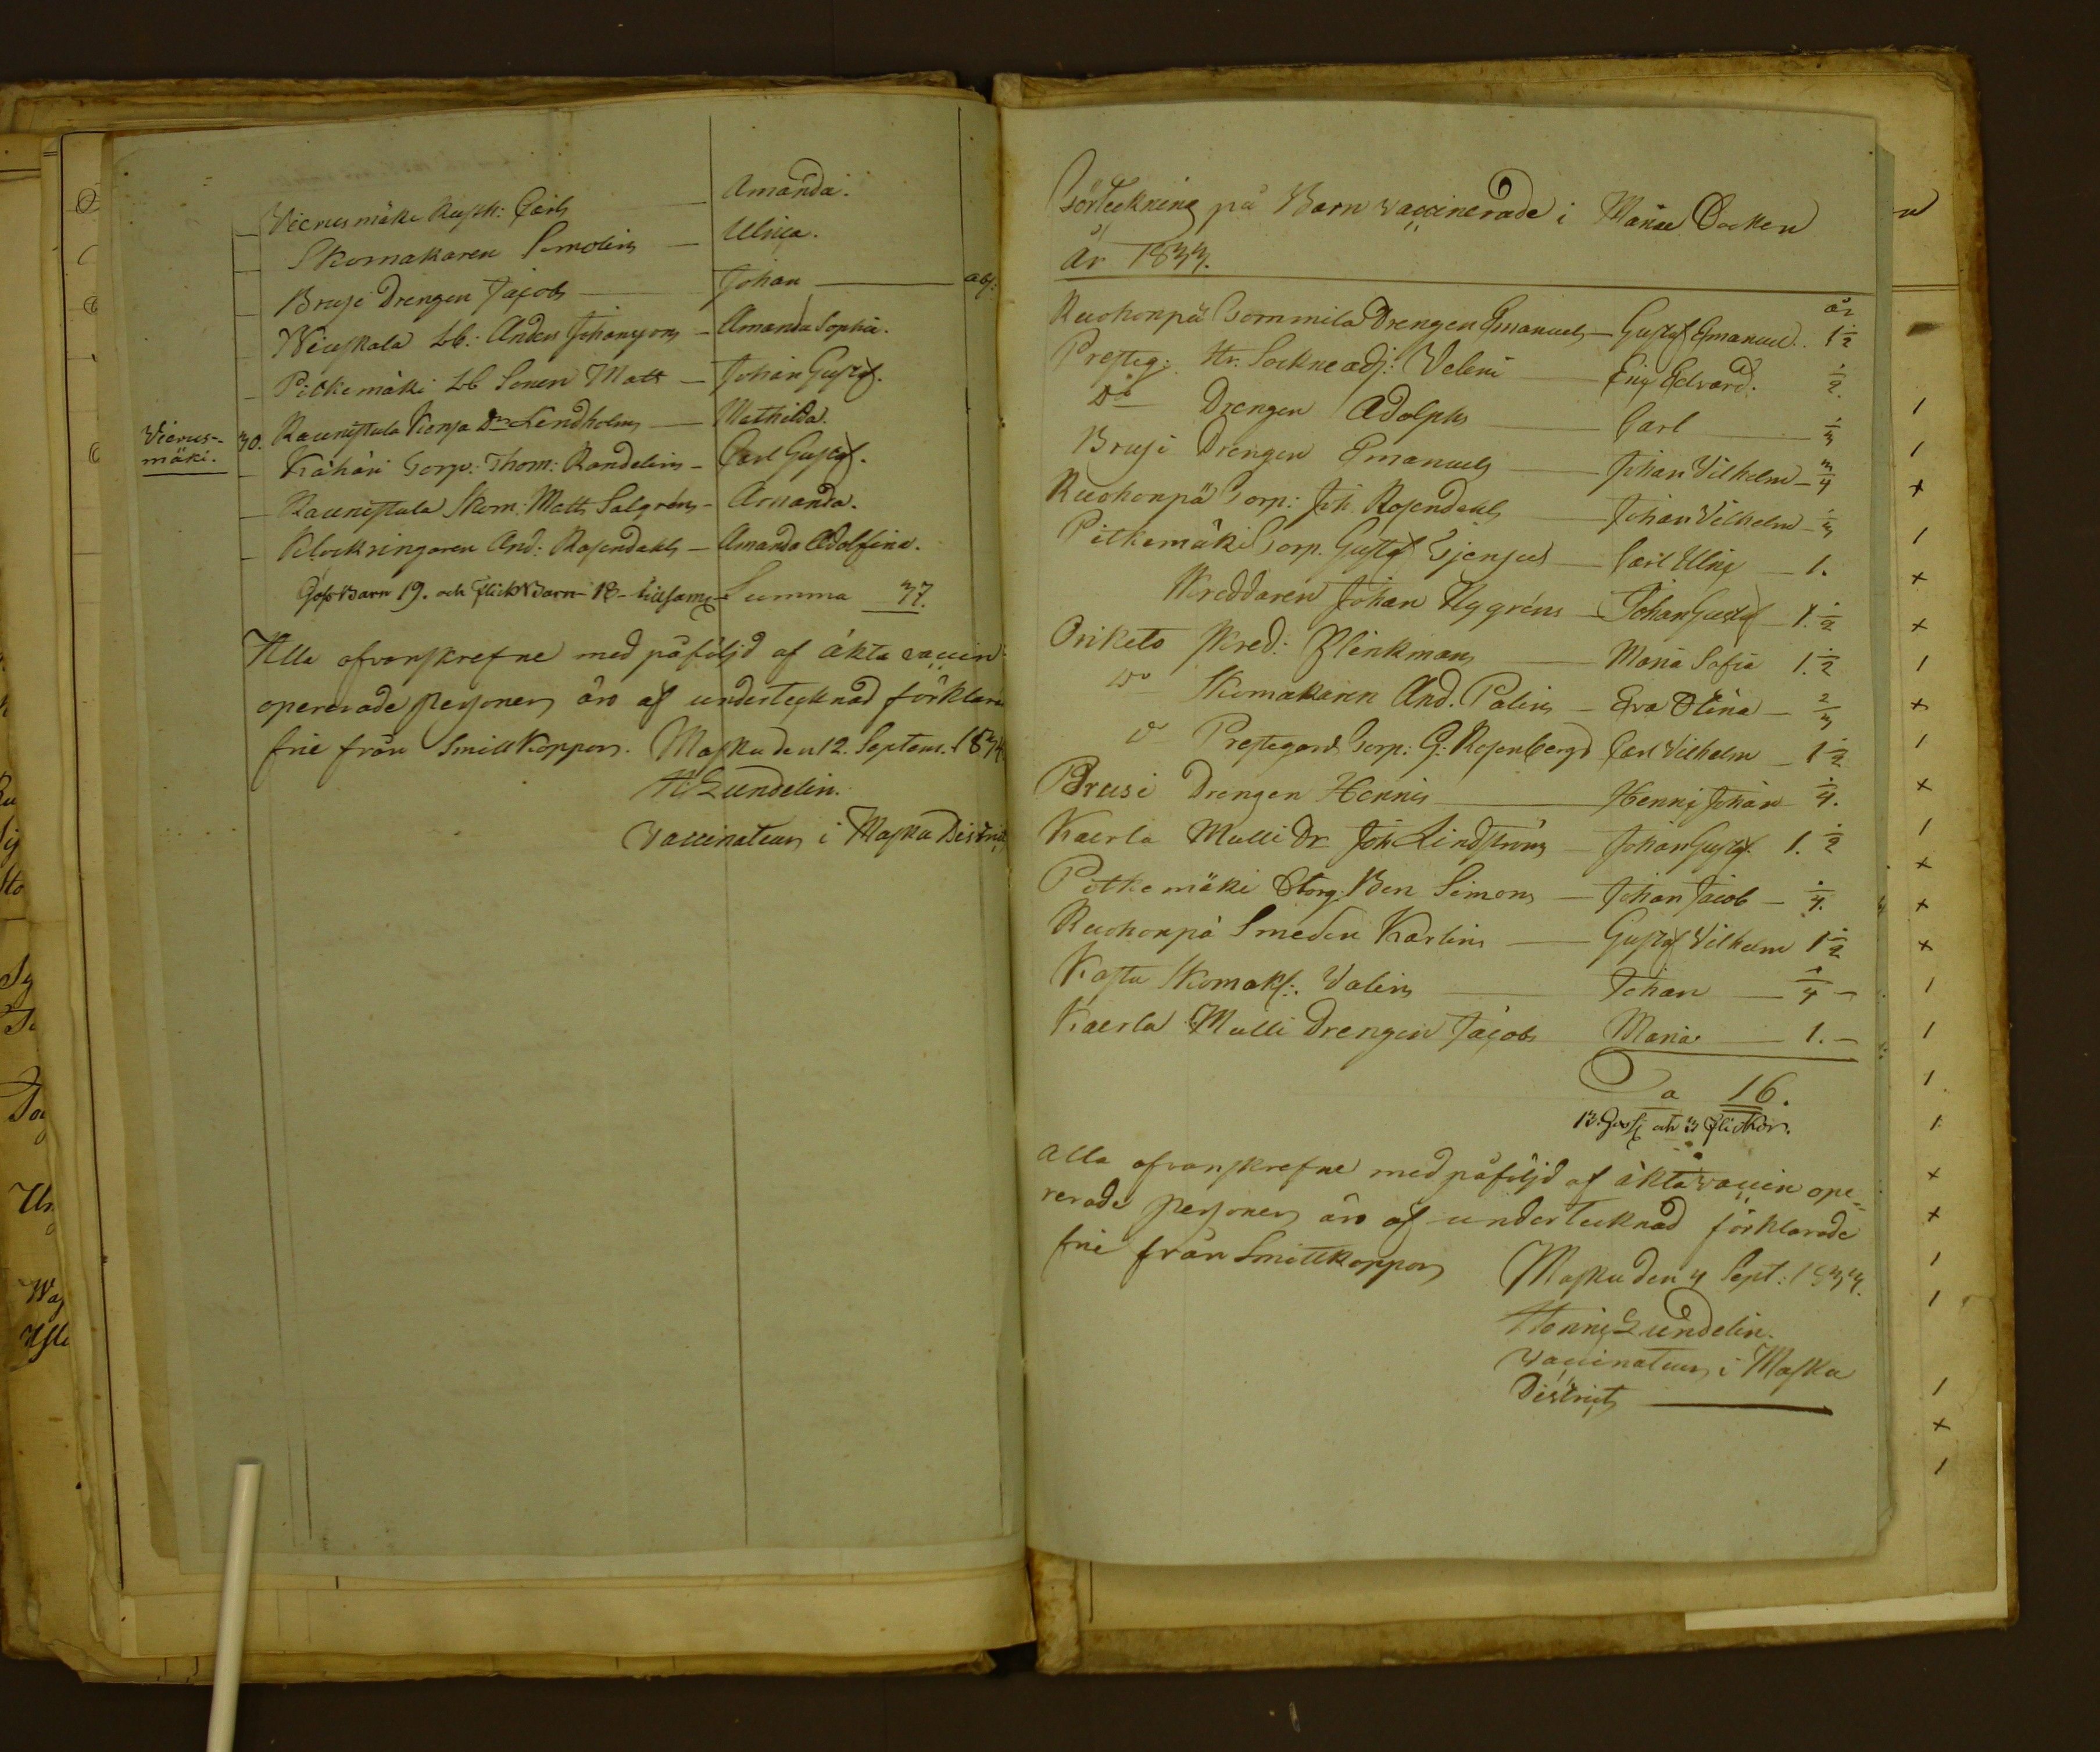 Vierusmäki Rusth: Carls — Amanda.
Skomakaren Simolins — Ulrica.
Brusi Drengen Jacobs — Johan — abs:
Wiuskala Lb: Anders Johanssons — Amanda Sophia.
Pitkemäki Lb Sonen Matts — Johan Gustaf.
Vierus-
mäki.
30. Raunistula Kierja Dr Lindholms — Mathilda.
Kähäri Torp: Thom: Randelins — Carl Gustaf.
Raunistula Skom: Matts Salgréns — Amanda.
Klockringaren And: Rosendahls — Amanda Adolfina.
Goss Barn 19. och Flick Barn 18 - tillsams Summa 37.
Alla ofvanskrefne med påföljd af äkta vaccin
opererade personer äro af undertecknad förklara
frie från Smittkoppor. Masku den 12. Septem. 1834
H Lundelin.
Vaccinateur i Masku District
Förteckning på Barn vaccinerade i Mariæ Socken
År 1833.
år
Ruohonpä Tommila Drengen Emanuels — Gustaf Emanuel. 1 1/2
Presteg: Hr. Sockneadj: Veleni — Eric Edvard. 1/2
Do Drengen Adolphs — Carl — 1/3
Brusi Drengen Emanuels — Johan Vilhelm — 3/4
Ruohonpä Torp: Joh. Rosendahls — Johan Vilhelm — 1/3
Pitkemäki Torp. Gustaf — Carl Ulric — 1.
Skreddaren Johan Nygréns — Johan Gustaf — 1. 1/2
Oriketo Skred: Flinkmans — Maria Sofia 1. 1/2
Do Skomakaren And. Palins — Eva Stina — 2/3
Do Prestegards Torp: G. Rosenbergs Carl Vilhelm — 1 1/2
Brusi Drengen Hennis — Henric Johan 1/4.
Kaerla Mulli Dr Joh Lindströms — Johan Gustaf. 1. 1/2
Pitkemäki Torp. Ben Simons — Johan Jacob — 1/4.
Ruohonpä Smeden Karlins — Gustaf Vilhelm 1 1/2
Kastu Skomak: Valins — Johan — 1/4 —
Kaerla Mulli Drengen Jacobs Maria — 1. —
Sa 16.
13. Gossr och 3 Flickor.
Alla ofvanskrefne med påföljd af äkta vaccin ope=
rerade personer äro af undertecknad förklarade
frie från Smittkoppor Masku den 4 Sept: 1834.
Henric Lundelin.
Vaccinateur i Masku
District —